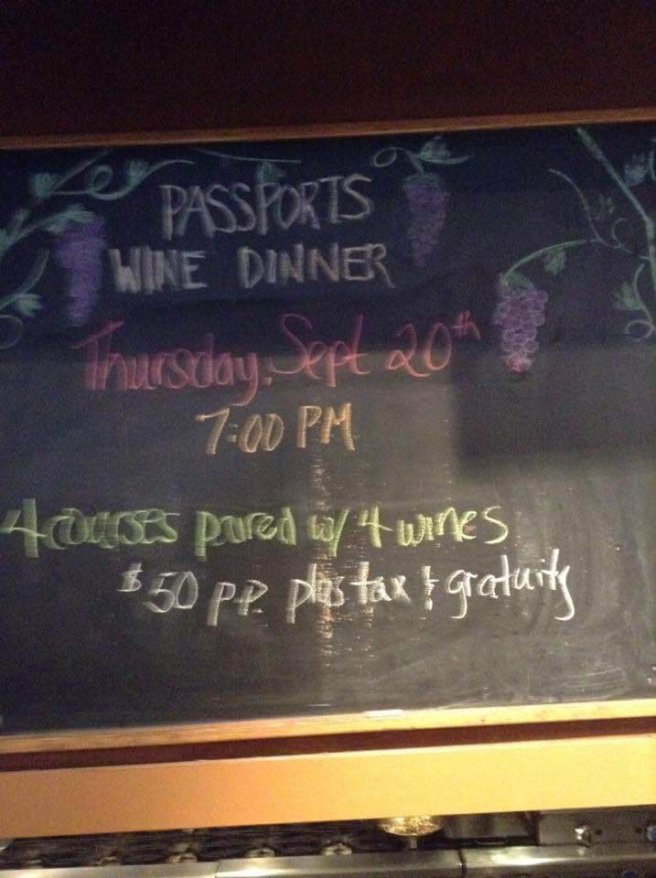 PASSPORTS
WINE DINNER
Thursday, Sept 20th
7:00 PM
4 courses pared w/ 4 wines
$50 p.p. plus tax & gratuity